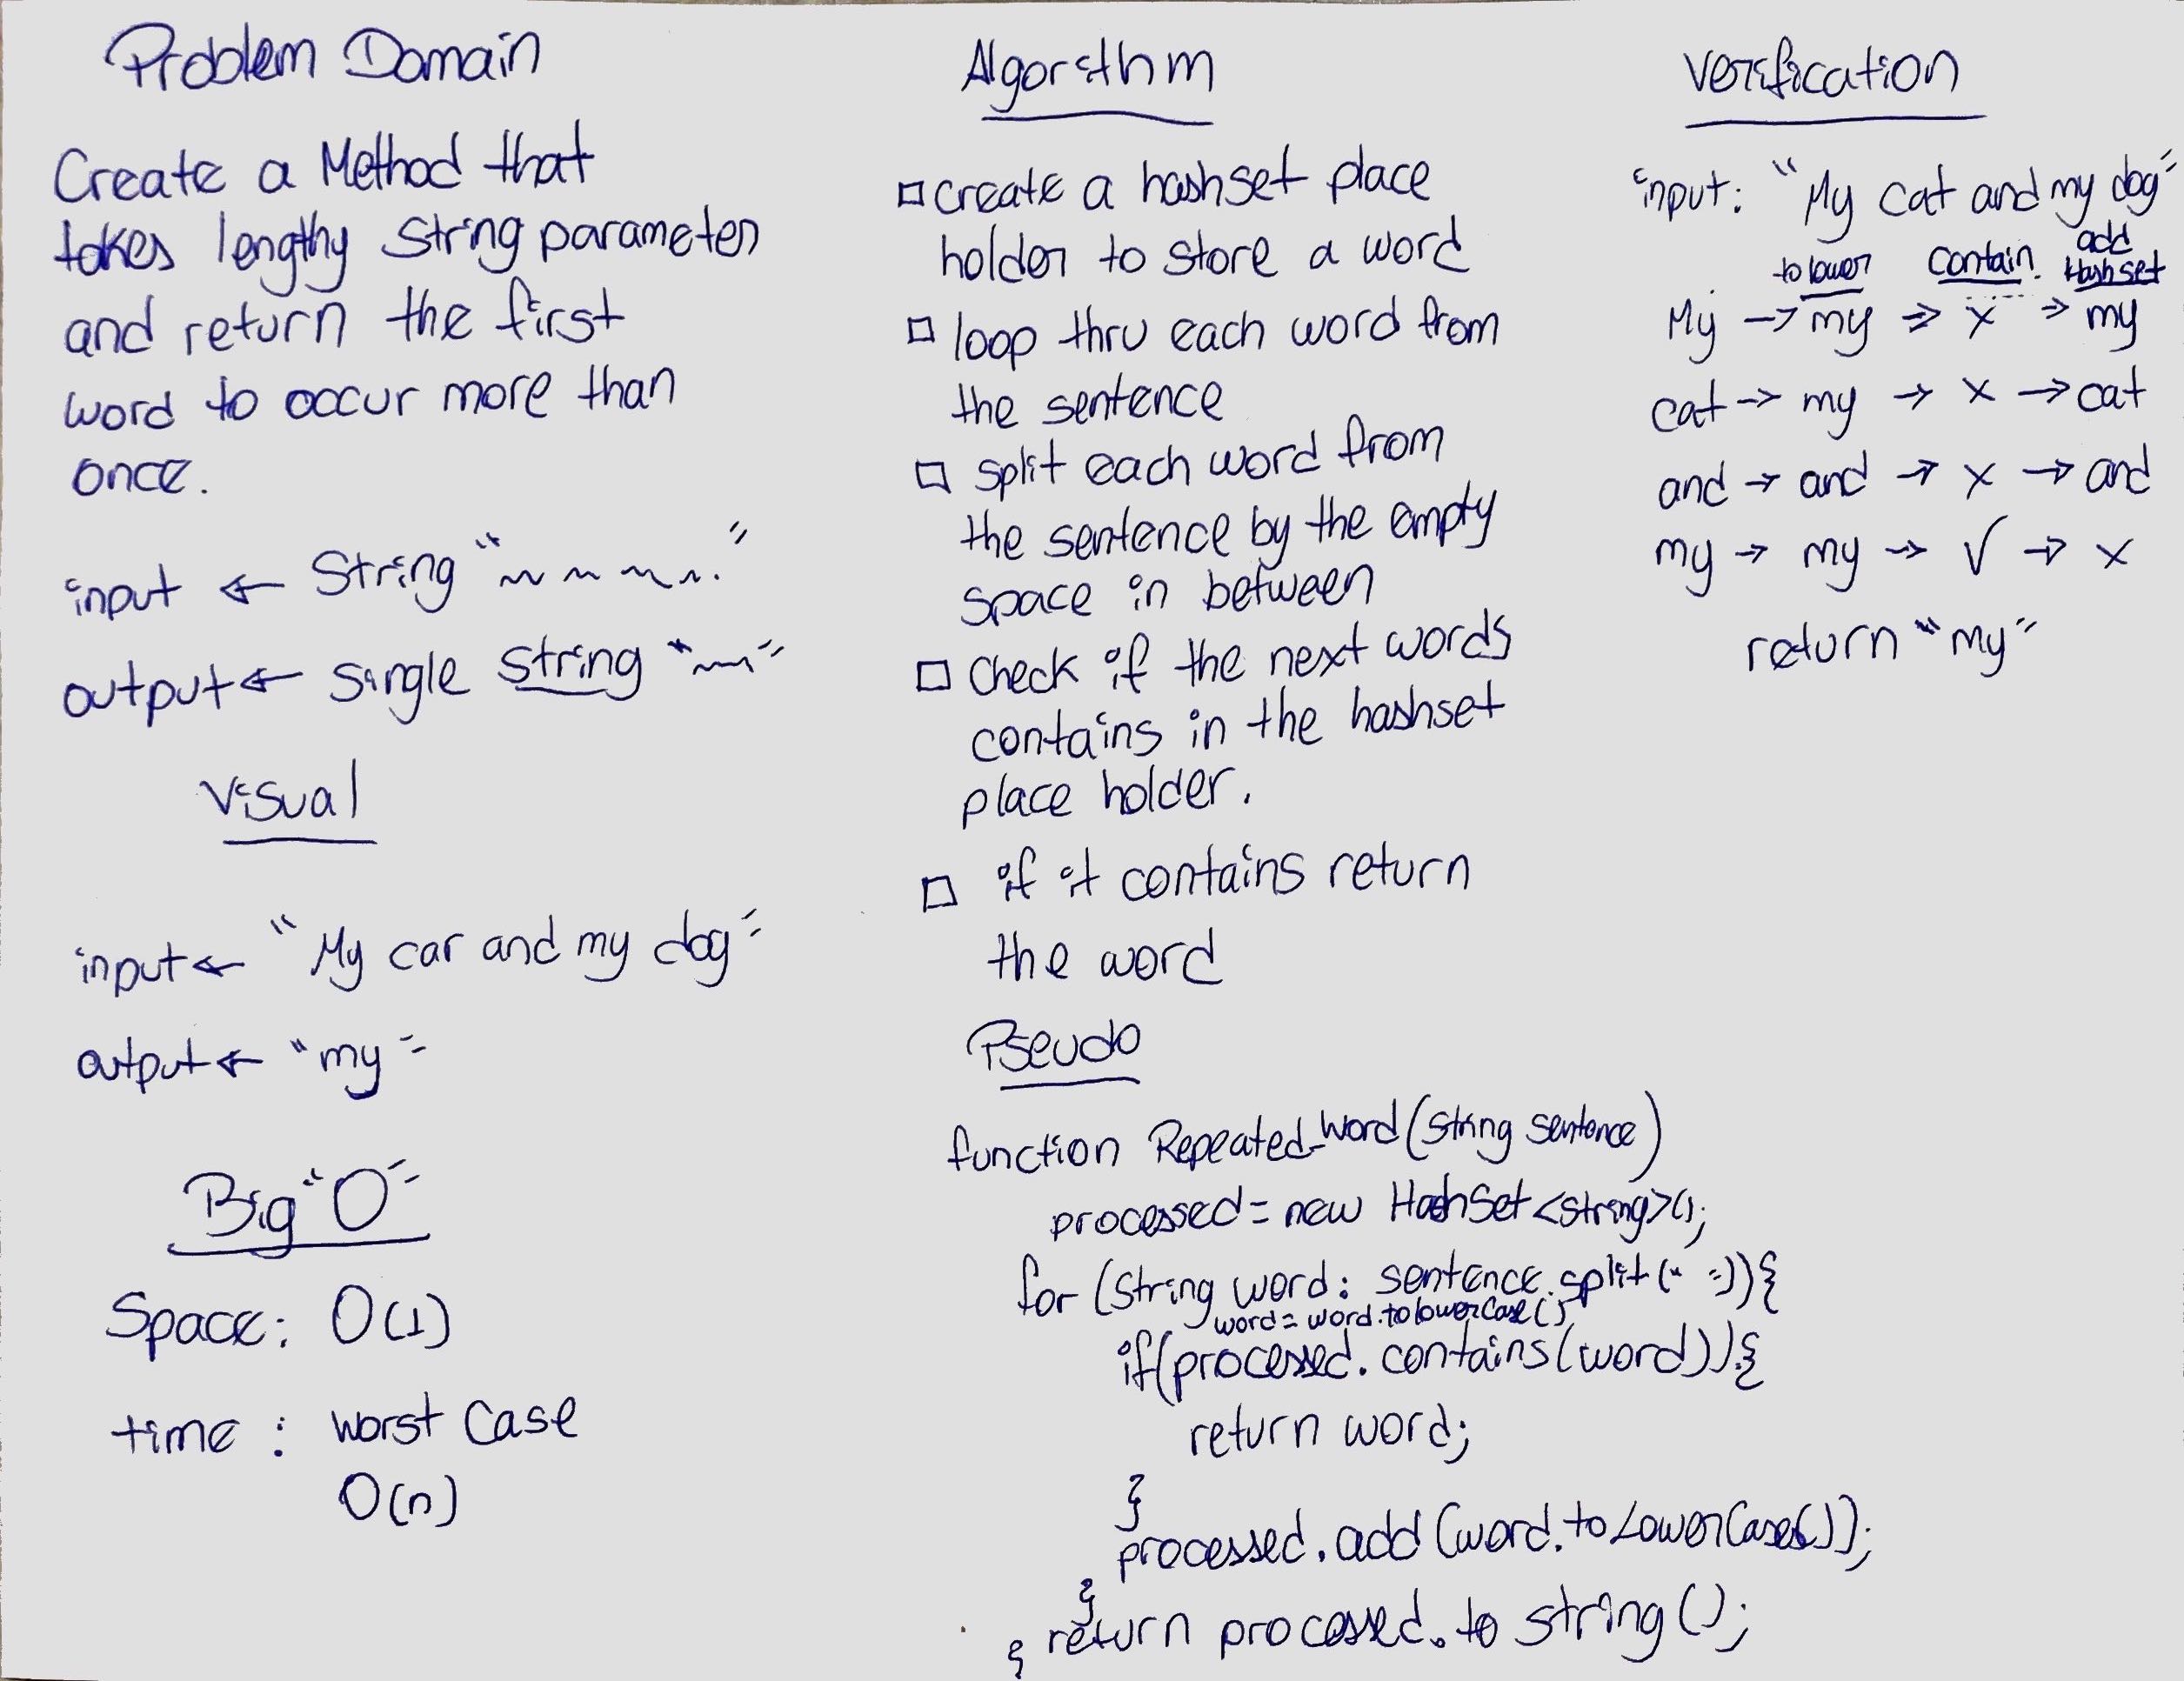 Problem Domain
Create a Method that
takes lengthy String parameter
and return the first
word to occur more than
once.
input ← String "~ ~ ~ ~."
output ← single string "~~"
Visual
input ← "My car and my dog"
output ← "my"
Big "O"
Space: O(1)
time : worst Case
O(n)
Algorithm
□ create a hashset place
holder to store a word
□ loop thru each word from
the sentence
□ split each word from
the sentence by the empty
space in between
□ Check if the next words
contains in the hashset
place holder.
□ if it contains return
the word
Pseudo
function Repeated_Word(String sentence)
processed = new HashSet<String>();
for (String word: sentence.split(" ")){
word = word.toLowerCase()
if(processed.contains(word)){
return word;
}
processed.add(word.toLowerCase());
}
} return processed.to string();
Verification
input: "My cat and my dog"
to lower contain. add Hashset
My → my ⇒ x ⇒ my
cat → my → x → cat
and → and → x → and
my → my → √ → x
return "my"